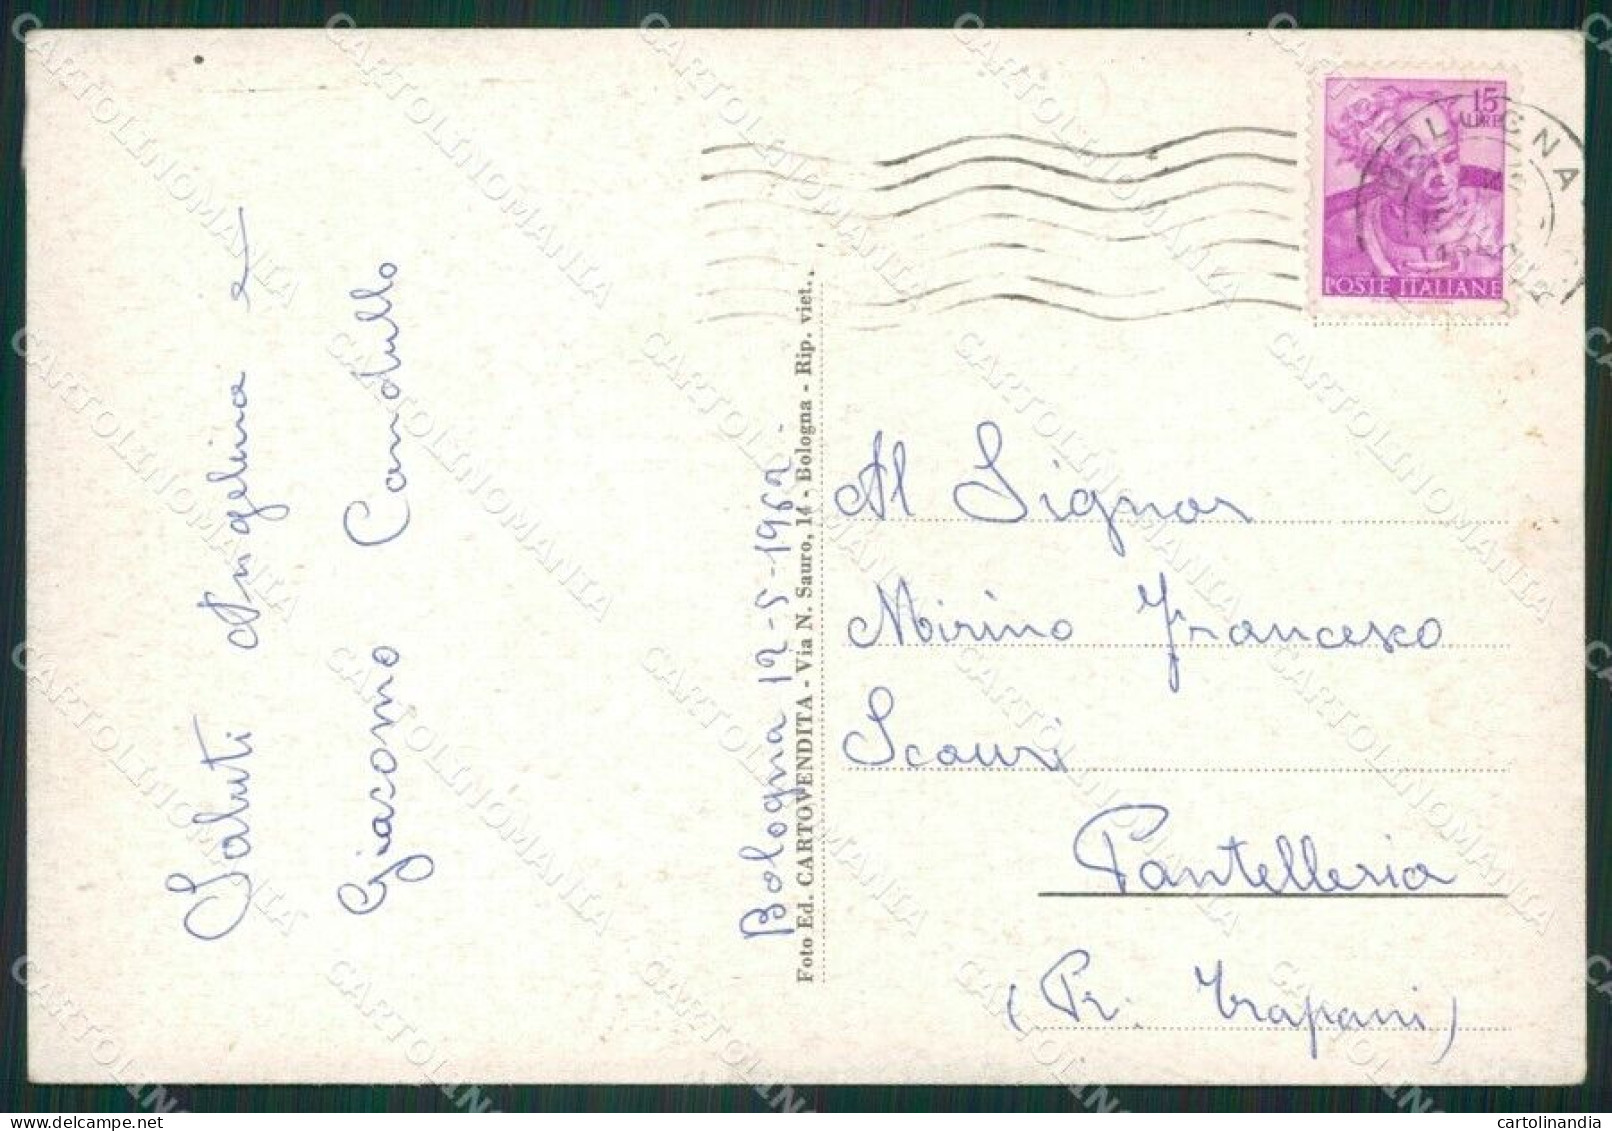 Saluti Angelina e
Giacomo Candullo
Bologna 12-5-1962-
Foto Ed. CARTOVENDITA - Via N. Sauro, 14 - Bologna - Rip. viet..
15
LIRE
POSTE ITALIANE
BOLOGNA
Al Signor
Mirino Francesco
Scauri
Pantelleria
(Pr. Trapani)
CARTOLINOMANIA
cartolinandia